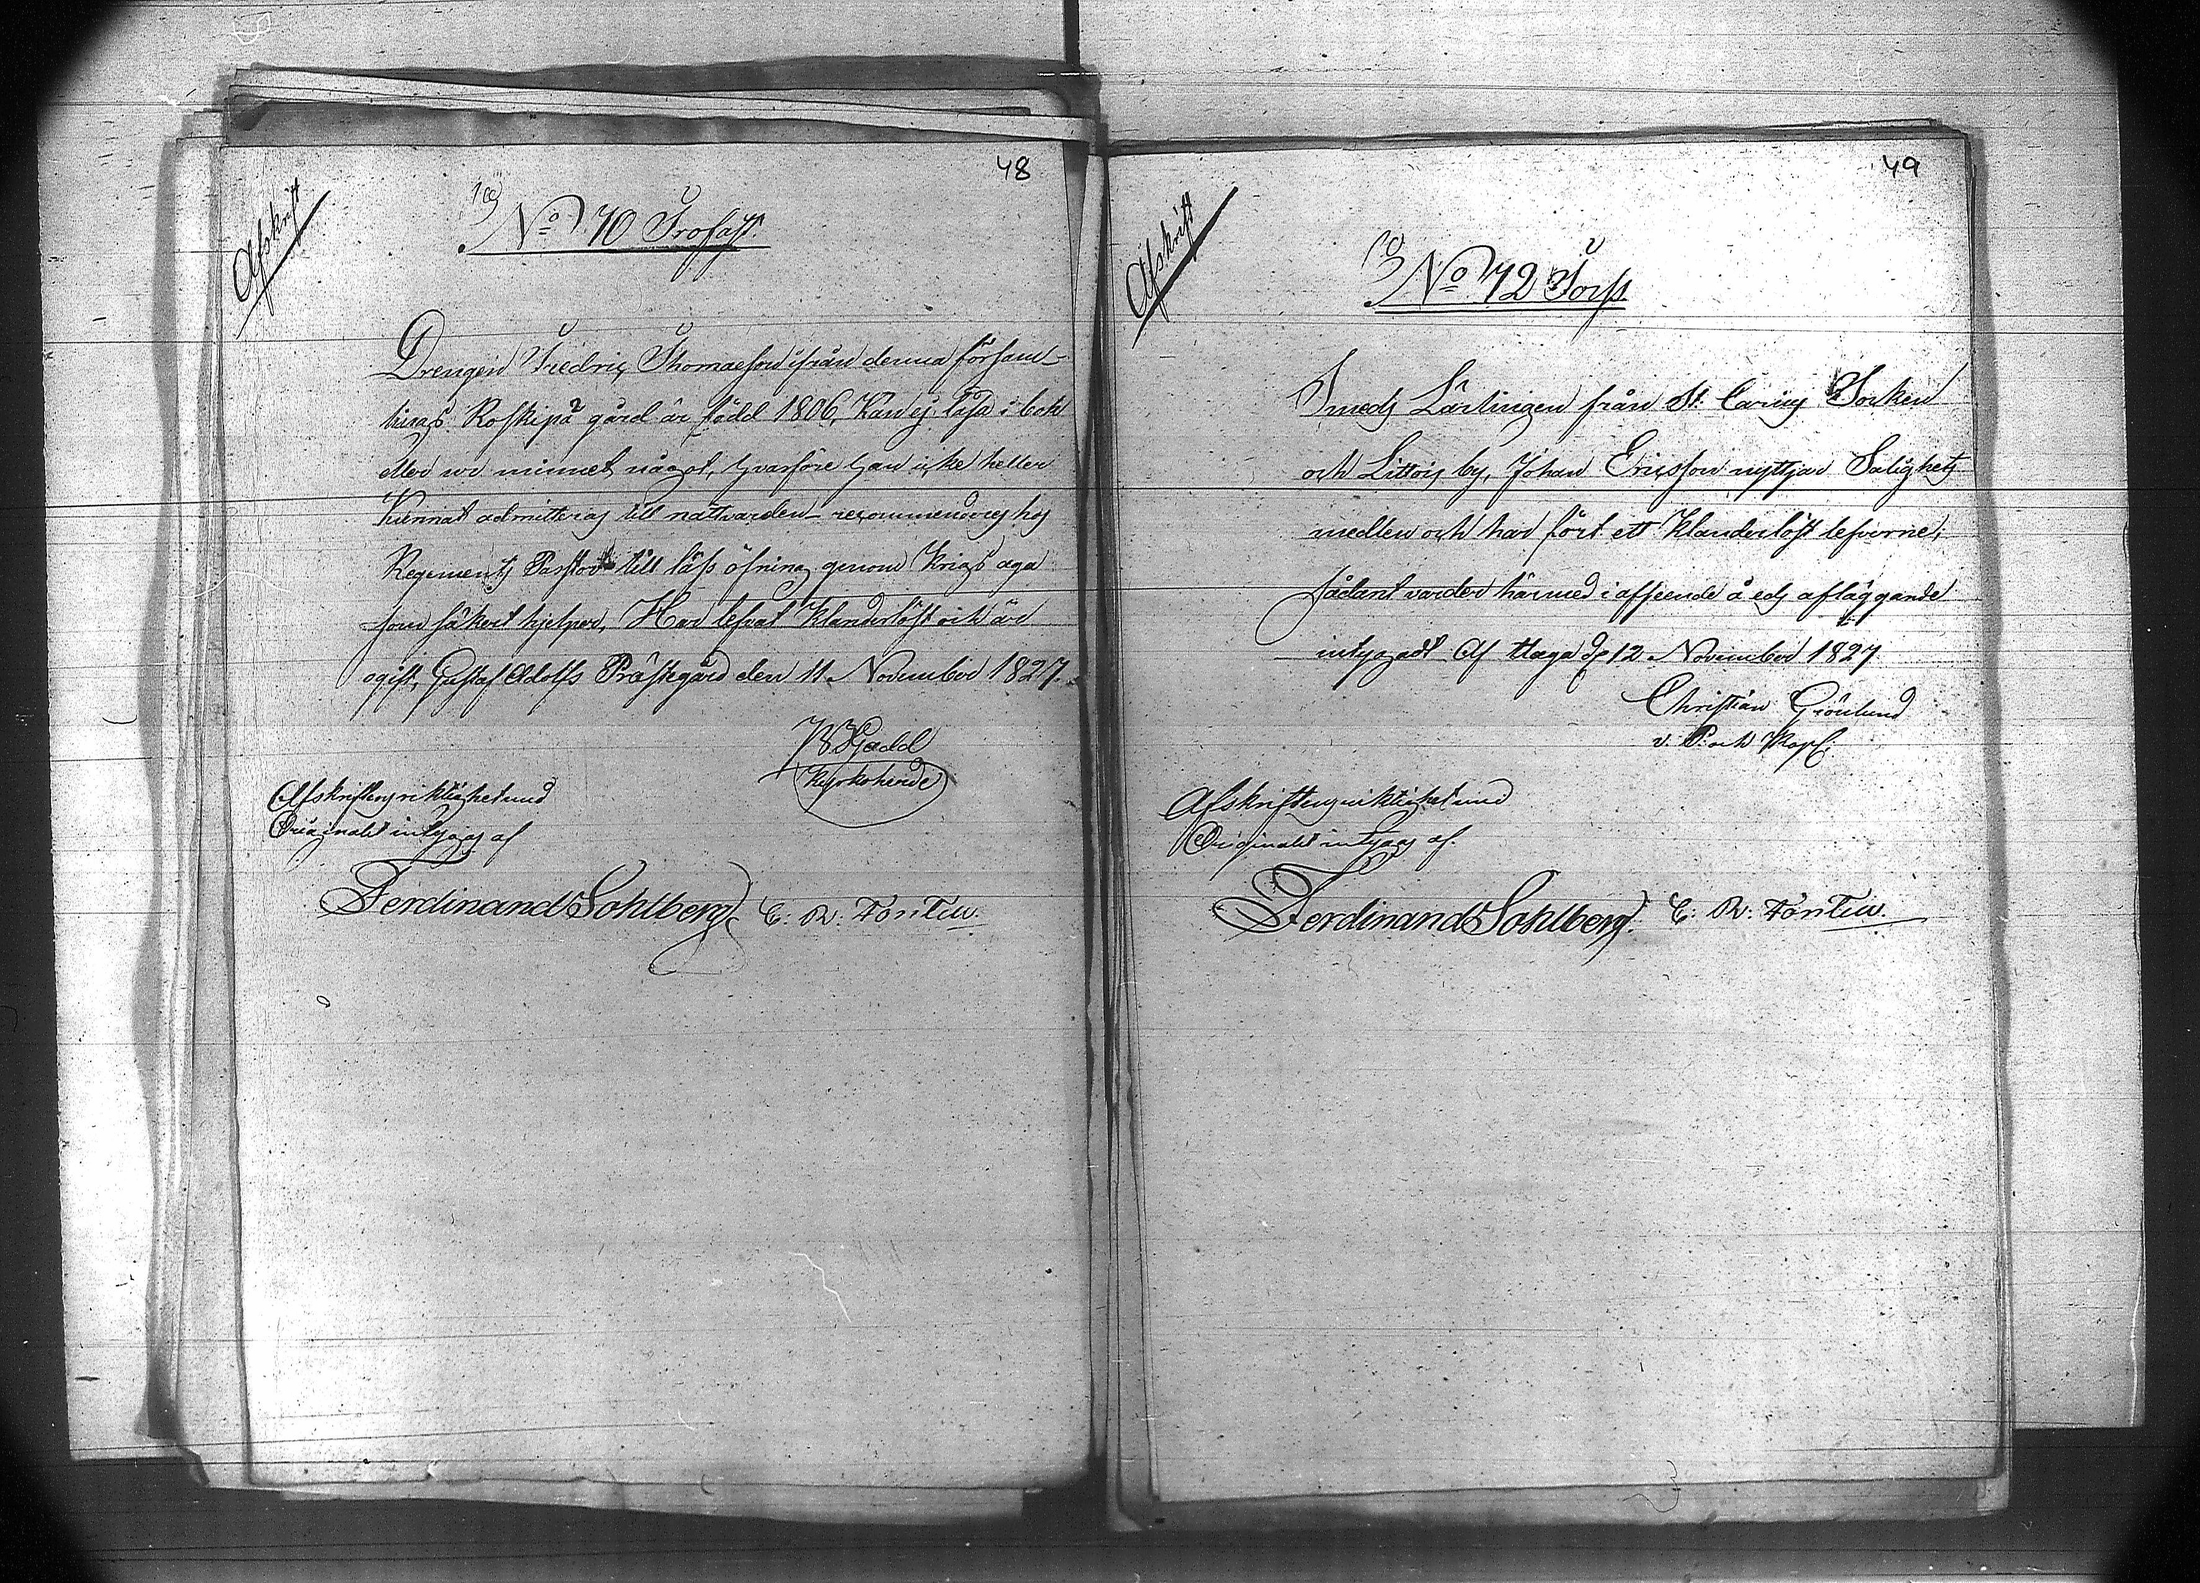 48
Afskrift
No 70 Trofast
Drengen Fredric Thomaeson ifrån denna försam-
lings Koskipä gård är född 1806, Kan ej läsa i bok
eller ur minnet något, hvarföre han icke heller
Kunnat admitteras till nattvarden – recommenderas hos
Regements Pastor till läse öfning genom Krigs aga
som säkert hjelper, Har lefvat klanderlöst och är
ogift, Gustaf Adolfs Prästegård den 11 November 1827.
Gadd
Kyrkoherde
Afskriftens riktighet med
Originalet intygas af
Ferdinand Sohlberg E: R: Tontin.
49
Afskrift
No 72 Torss
Smeds Lärlingen från St: Carins Socken
och Littois by, Johan Ericsson nyttjar Salighets
medlen och har fört ett klanderlöst lefverne;
sådant varder härmed i afseende å eds afläggande
intygadt Af Haga d 12 November 1827
Christian Grönlund
v. P. och Kapl:
Afskriftens riktighet med
Originalet intygas af.
Ferdinand Sohlberg. E: R: Tontin.